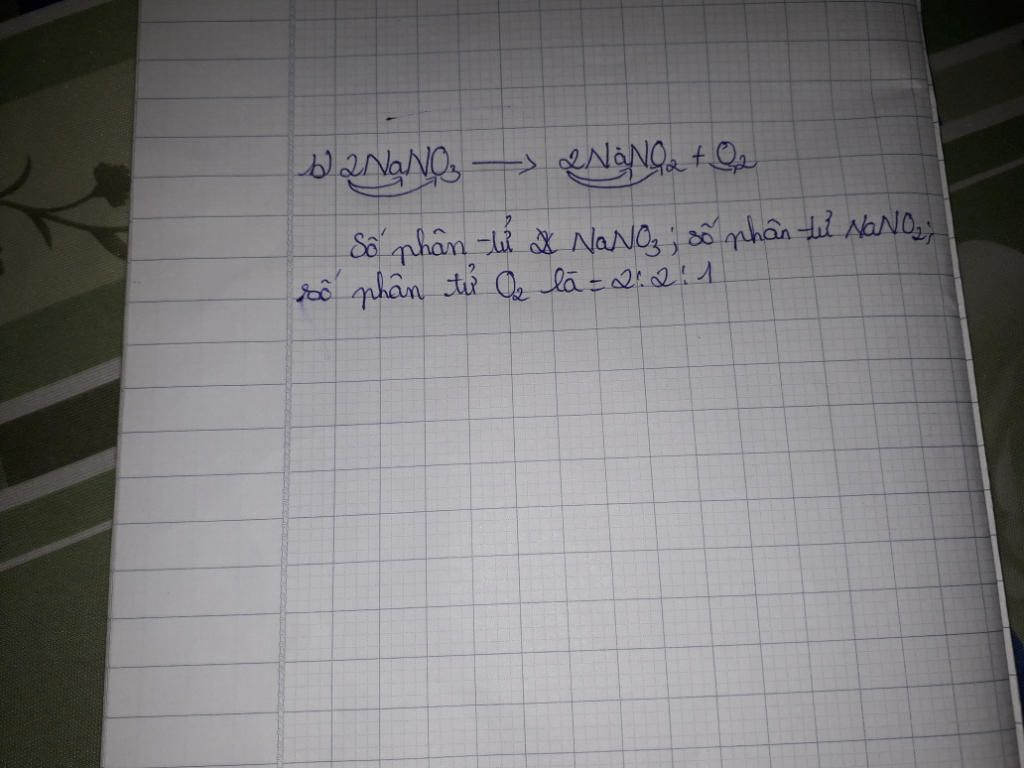 b) 2NaNO₃ → 2NaNO₂ + O₂
Số phân tử NaNO₃; số phân tử NaNO₂;
số phân tử O₂ là = 2:2:1